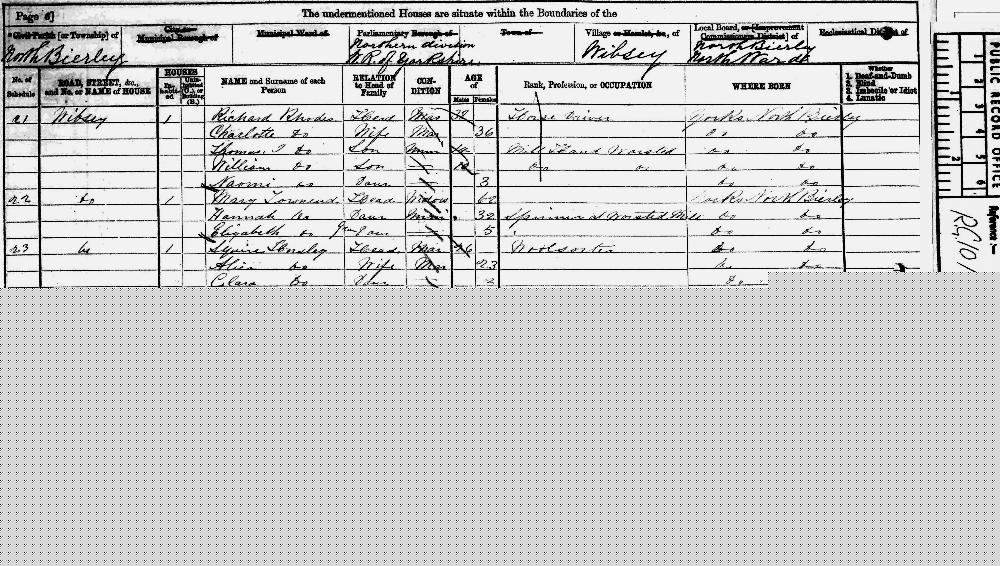 Page 6]
The undermentioned Houses are situate within the Boundaries of the
Civil Parish [or Township] of
City or Municipal Borough of
Municipal Ward of
Parliamentary Borough of
Town of
Village or Hamlet, &c., of
Local Board, or [Improvement Commissioners District] of
Ecclesiastical District of
North Bierley
Northern division W.R. of Yorkshire
Wibsey
North Bierley North Ward
No. of Schedule
ROAD, STREET, &c., and No. or NAME of HOUSE
HOUSES
Inhabited
Uninhabited (U.), or Building (B.)
NAME and Surname of each Person
RELATION to Head of Family
CONDITION
AGE of
Males
Females
Rank, Profession, or OCCUPATION
WHERE BORN
Whether
1. Deaf-and-Dumb
2. Blind
3. Imbecile or Idiot
4. Lunatic
21 Wibsey 1 Richard Rhodes Head Mar 38 Horse Driver Yorks North Bierley
Charlotte Do Wife Mar 36 Do Do
Thomas Do Son Mill Hand Worsted Do Do
William Do Son Do Do Do Do
Naomi Do Daur 3 Do Do
22 Do 1 Mary Townend Head Widow 62 Yorks North Bierley
Hannah Do Daur 32 Spinner at Worsted Mill Do Do
Elizabeth Do Daur 5 Do Do
23 Do 1 Squire Head Mar 26 Woolsorter Do Do
Alice Do Wife Mar 23 Do Do
Clara Do Daur Do
PUBLIC RECORD OFFICE
1
2
3
4
5
6
Reference :-
RG10/